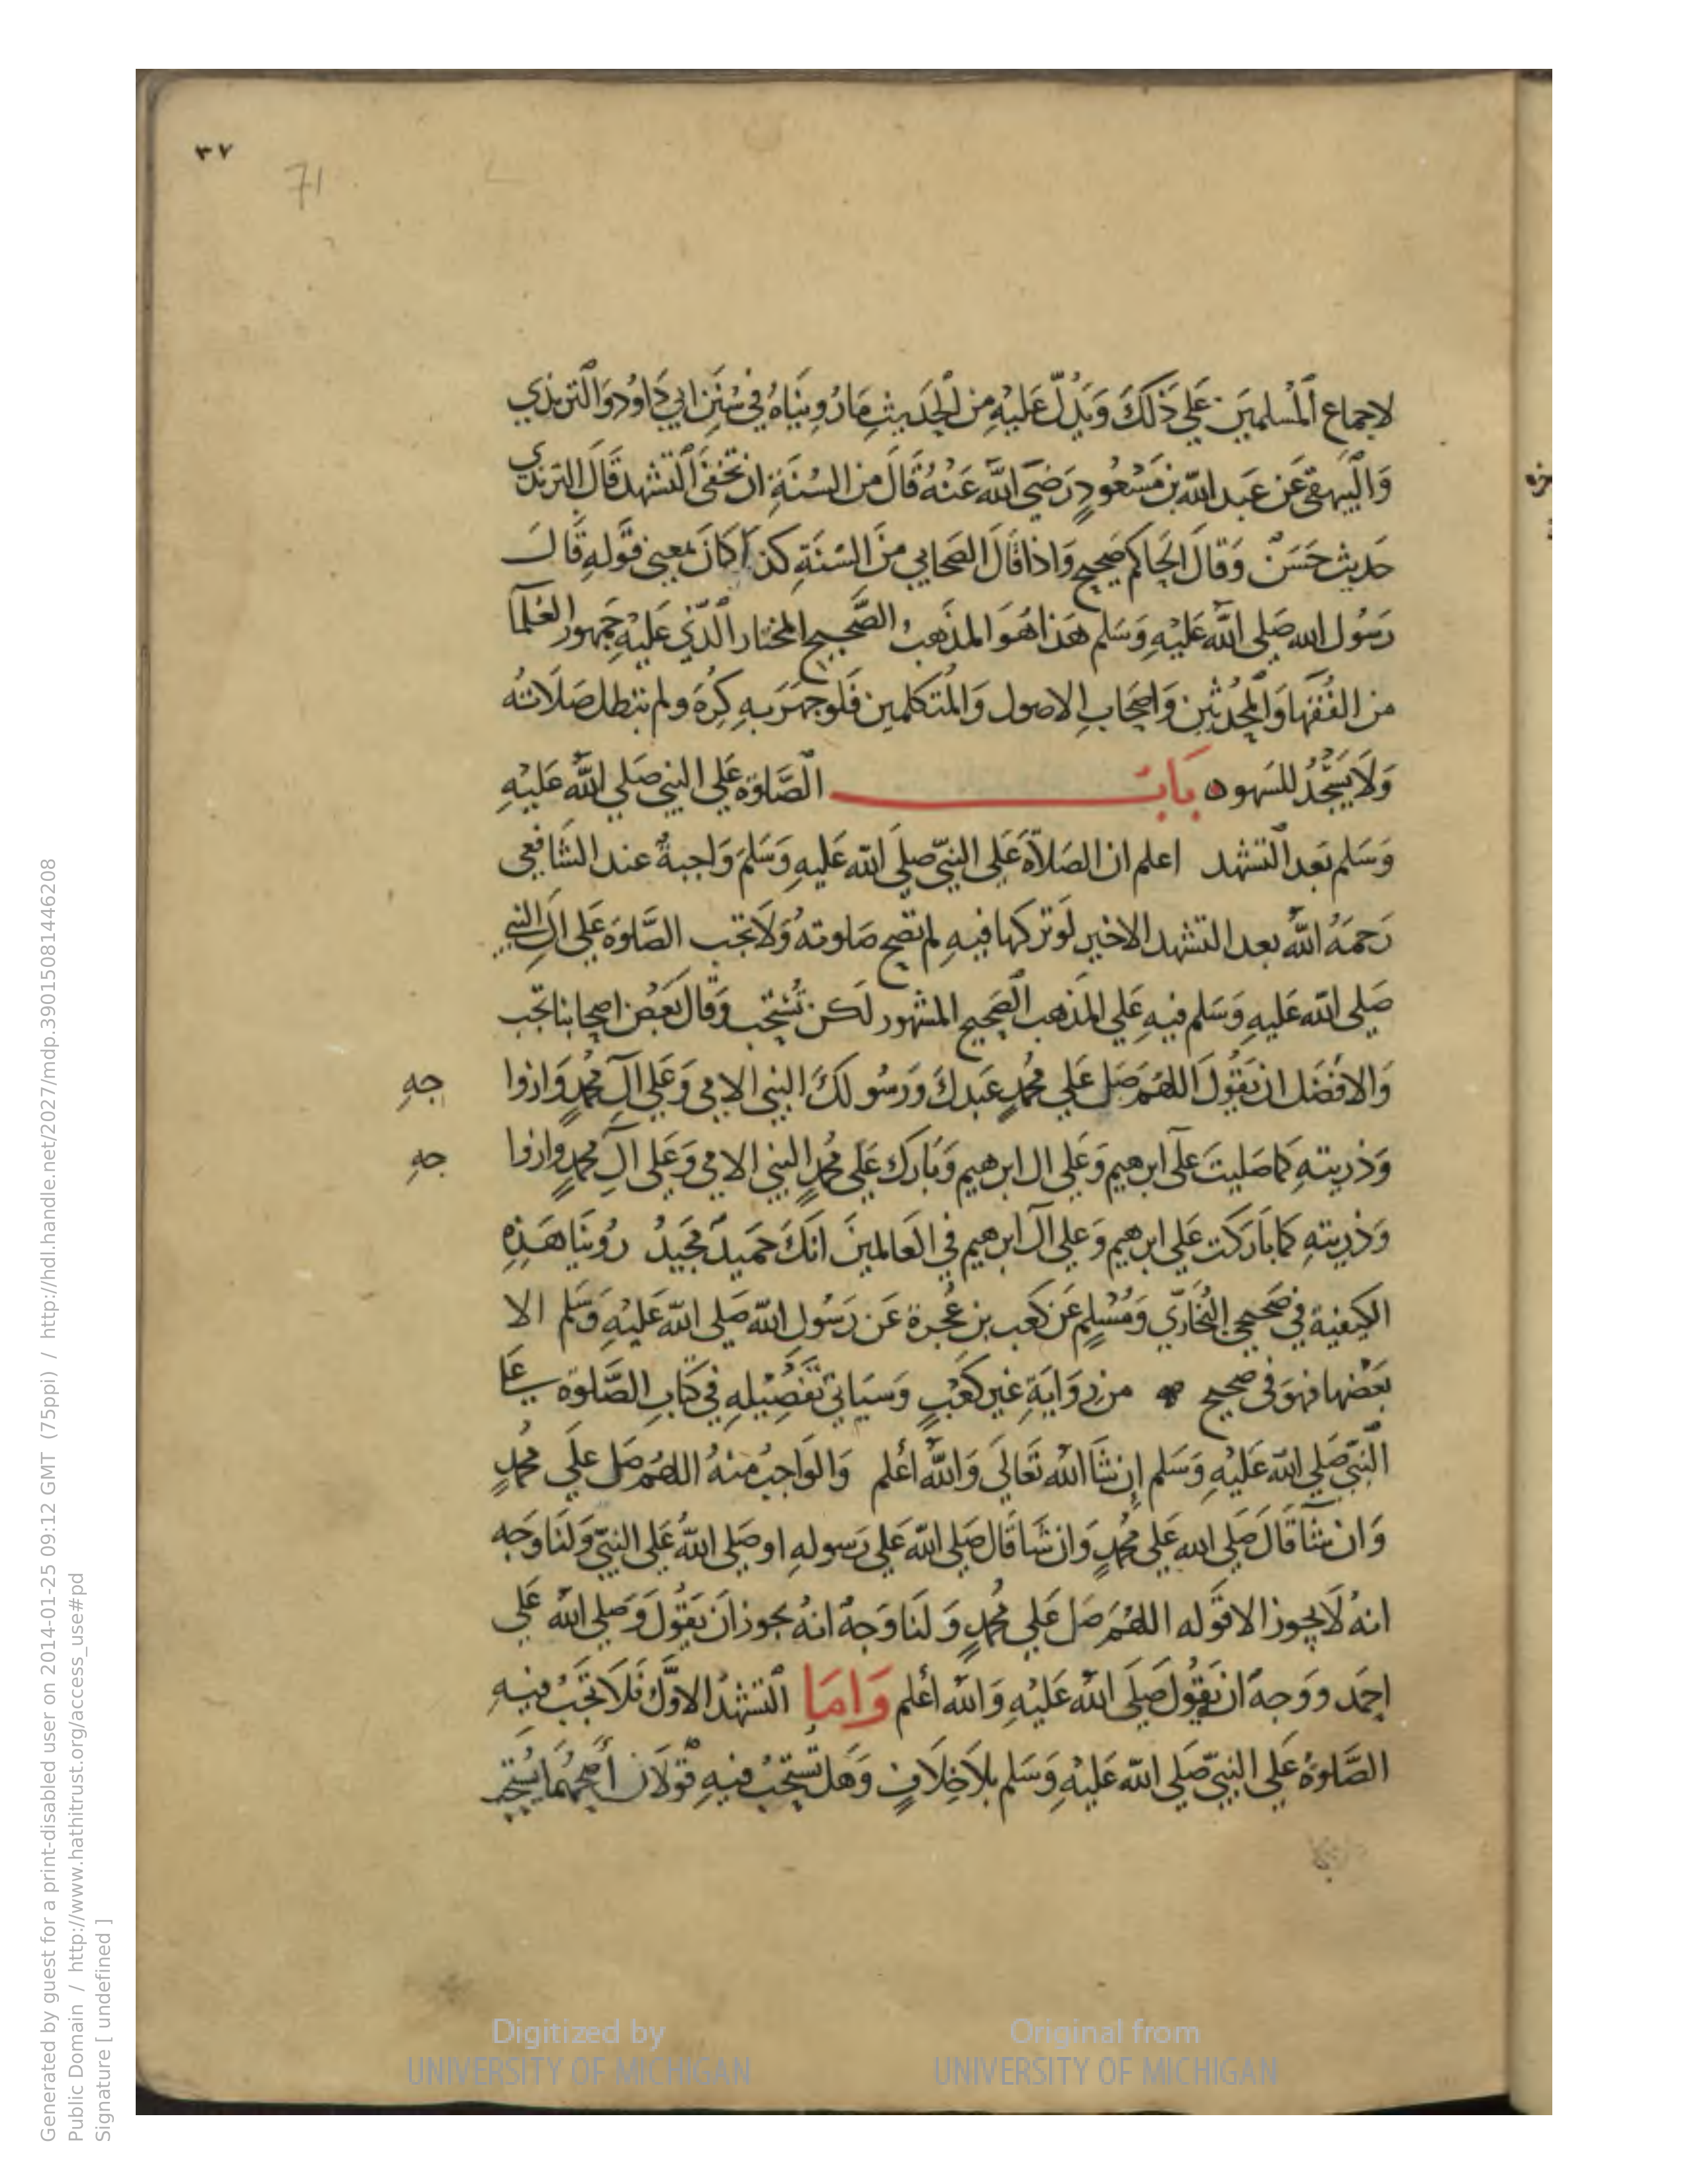 ٣٧
71
لاجماع المسلمين على ذلك ويدل عليه من الحديث ما رويناه في سنن ابي داود والترمذي
والبيهقي عن عبد الله بن مسعود رضي الله عنه قال من السنة ان تخفى التشهد قال الترمذي
حديث حسن وقال الحاكم صحيح واذا قال الصحابي من السنة كذا كان بمعنى قوله قال
رسول الله صلى الله عليه وسلم هذا هو المذهب الصحيح المختار الذي عليه جمهور العلما
من الفقها والمحدثين واصحاب الاصول والمتكلمين فلو جهر به كره ولم تبطل صلاته
ولا يسجد للسهو باب الصلوة على النبي صلى الله عليه
وسلم بعد التشهد اعلم ان الصلاة على النبي صلى الله عليه وسلم واجبة عند الشافعي
رحمه الله بعد التشهد الاخير لو تركها فيه لم تصح صلوته ولا تجب الصلوة على ال النبي
صلى الله عليه وسلم فيه على المذهب الصحيح المشهور لكن تستحب وقال بعض اصحابنا تجب
والافضل ان يقول اللهم صل على محمد عبدك ورسولك النبي الامي وعلى آل محمد وازوا جه
وذريته كما صليت على ابرهيم وعلى ال ابرهيم وبارك على محمد النبي الامي وعلى آل محمد وازوا جه
وذريته كما باركت على ابرهيم وعلى آل ابرهيم في العالمين انك حميد مجيد روينا هذه
الكيفية في صحيحي البخاري ومسلم عن كعب بن عجرة عن رسول الله صلى الله عليه وسلم الا
بعضها فهو في صحيح من رواية غير كعب وسياتي تفصيله في كتاب الصلوة على
النبي صلى الله عليه وسلم إن شا الله تعالى والله أعلم والواجب منه اللهم صل على محمد
وان شا قال صلى الله على محمد وان شا قال صلى الله على رسوله او صلى الله على النبي ولنا وجه
انه لا يجوز الا قوله اللهم صل على محمد ولنا وجه انه يجوز ان يقول وصلى الله على
احمد ووجه ان يقول صلى الله عليه والله أعلم واما التشهد الاول فلا تجب فيه
الصلوة على النبي صلى الله عليه وسلم بلا خلاف وهل تستحب فيه قولان أصحهما يستحب
Digitized by
UNIVERSITY OF MICHIGAN
Original from
UNIVERSITY OF MICHIGAN
Generated by guest for a print-disabled user on 2014-01-25 09:12 GMT (75ppi) / http://hdl.handle.net/2027/mdp.39015081446208
Public Domain / http://www.hathitrust.org/access_use#pd
Signature [ undefined ]